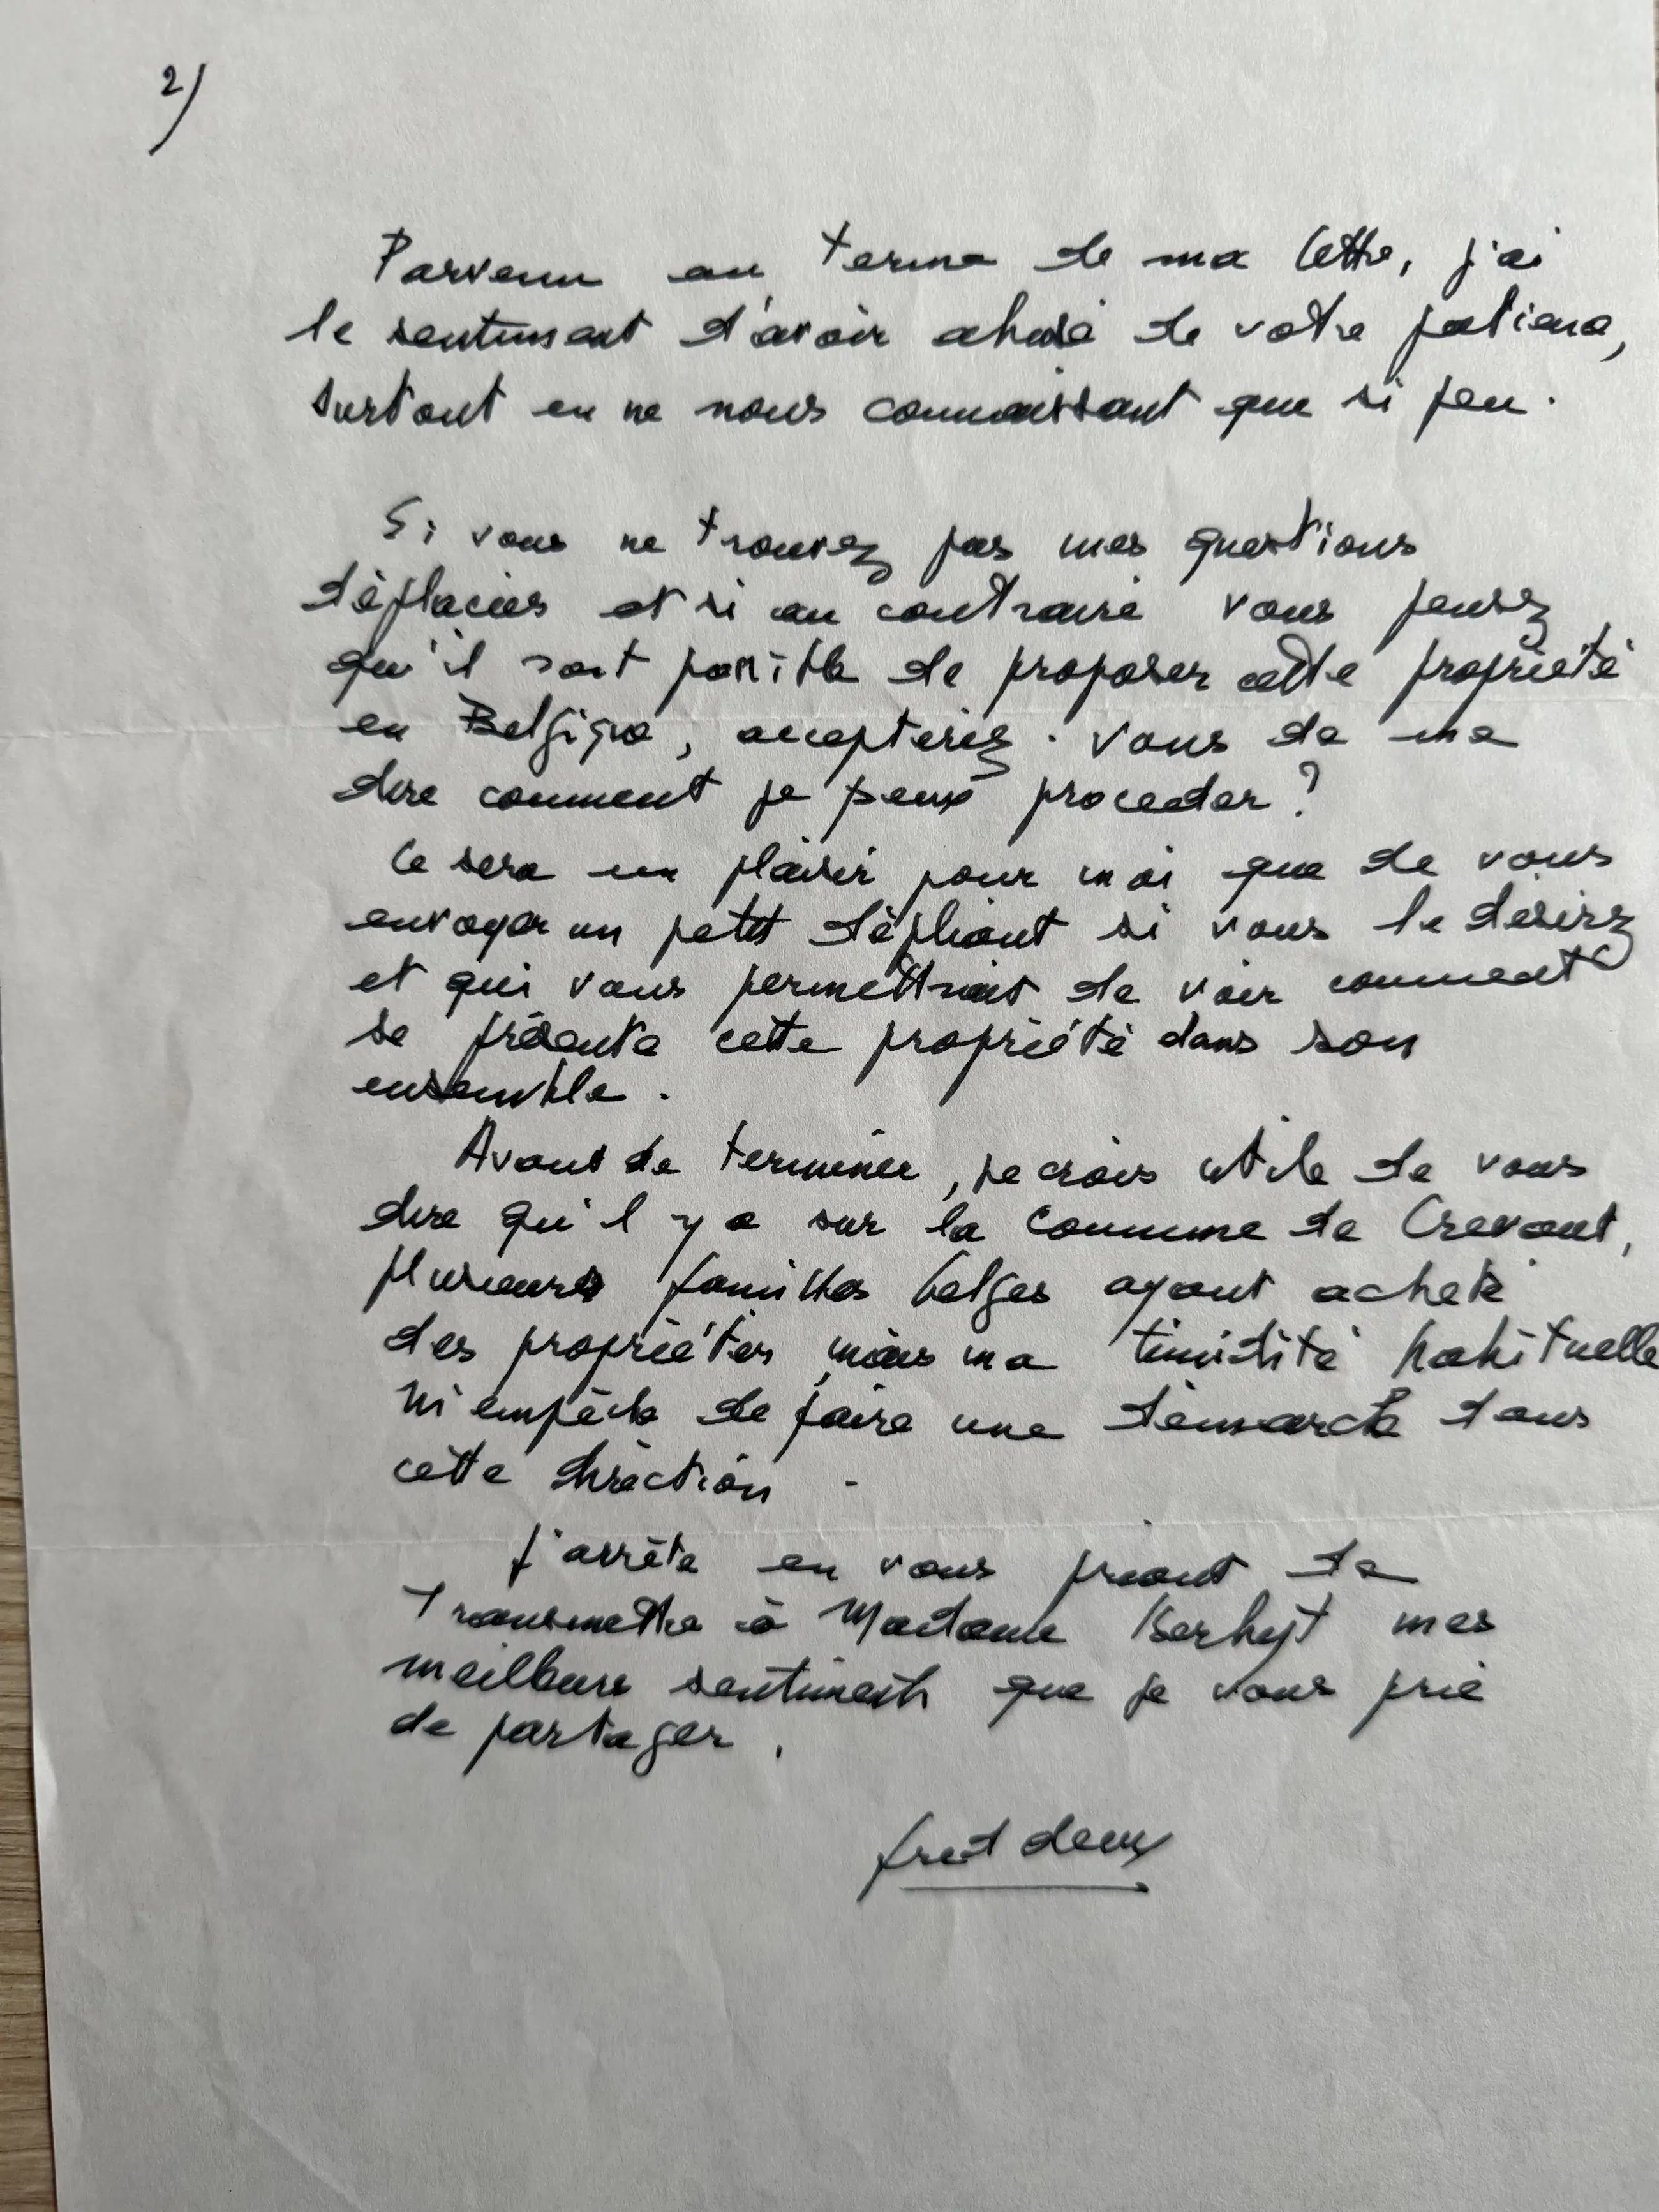 2)
Parvenu au terme de ma lettre, j'ai
le sentiment d'avoir abusé de votre patience,
surtout en ne nous connaissant que si peu.
Si vous ne trouvez pas mes questions
déplacées et si au contraire vous pensez
qu'il soit possible de proposer cette propriété
en Belgique, accepteriez-vous de me
dire comment je peux proceder ?
Ce sera un plaisir pour moi que de vous
envoyer un petit dépliant si vous le désirez
et qui vous permettrait de voir comment
se présente cette propriété dans son
ensemble.
Avant de terminer, je crois utile de vous
dire qu'il y a sur la Commune de Crevant,
plusieurs familles belges ayant acheté
des propriétés, mais ma timidité habituelle
m'empêche de faire une démarche dans
cette direction.
J'arrête en vous priant de
transmettre à Madame mes
meilleurs sentiments que je vous prie
de partager.
fred deux